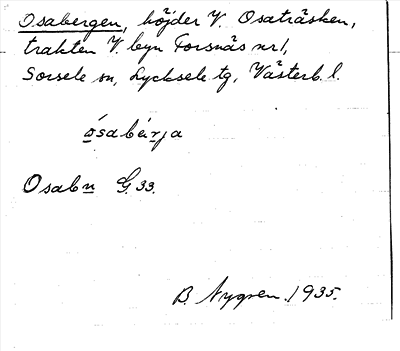 Osabergen, höjder V. Osaträsken,
trakten V. byn Forsnäs nr 1,
Sorsele sn, Lycksele tg, Västerb. l.
ósabæ̀rja
Osabn G. 33.
B. Nygren. 1935.